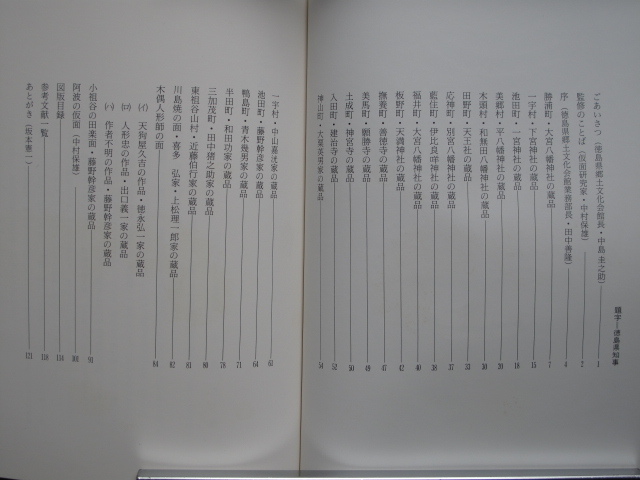 題字―徳島県知事
ごあいさつ（徳島県郷土文化会館長・中島圭之助）――1
監修のことば（仮面研究家・中村保雄）――2
序（徳島県郷土文化会館業務部長・田中善隆）――4
勝浦町・大宮八幡神社の蔵品――7
一宇村・下宮神社の蔵品――15
池田町・一宮神社の蔵品――16
美郷村・平八幡神社の蔵品――18
木頭村・和無田八幡神社の蔵品――20
田野町・天王社の蔵品――30
応神町・別宮八幡神社の蔵品――37
藍住町・伊比良咩神社の蔵品――38
福井町・大宮八幡神社の蔵品――40
板野町・天満神社の蔵品――42
撫養町・善徳寺の蔵品――47
美馬町・願勝寺の蔵品――49
土成町・神宮寺の蔵品――50
入田町・建治寺の蔵品――52
神山町・大粟英男家の蔵品――54
一宇村・中山嘉洸家の蔵品――63
池田町・藤野幹彦家の蔵品――64
鴨島町・青木幾男家の蔵品――71
半田町・和田功家の蔵品――78
三加茂町・田中猪之助家の蔵品――80
東祖谷山村・近藤伯行家の蔵品――81
川島焼の面・喜多弘家・上松理一郎家の蔵品――82
木偶人形師の面――84
(イ)天狗屋久吉の作品・徳永弘一家の蔵品
(ロ)人形忠の作品・出口義一家の蔵品
(ハ)作者不明の作品・藤野幹彦家の蔵品
小祖谷の田楽面・藤野幹彦家の蔵品――91
阿波の仮面（中村保雄）――101
図版目録――114
参考文献一覧――118
あとがき（坂本憲一）――121